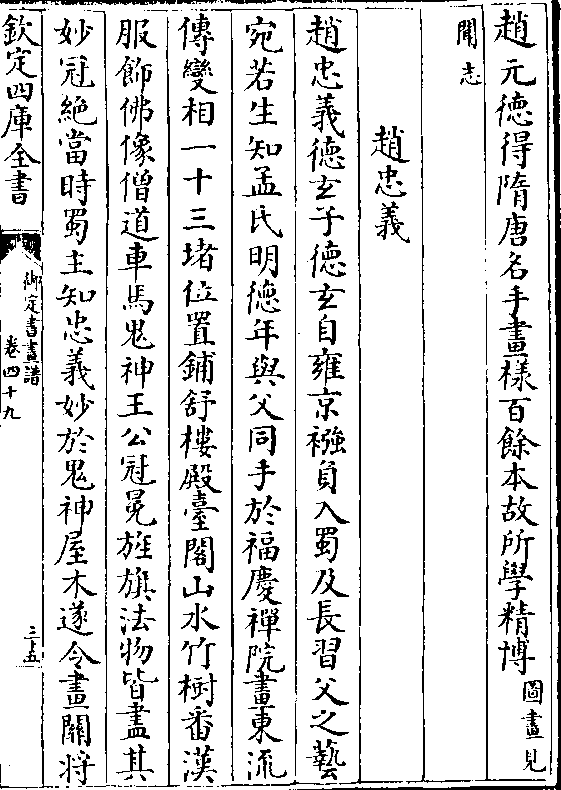 趙元德得隋唐名手畫樣百餘本故所學精博圖畫見
聞志
趙忠義
趙忠義德玄子德玄自雍京襁負入蜀及長習父之藝
宛若生知孟氏明德年與父同手於福慶禪院畫東流
傳變相一十三堵位置鋪舒樓殿臺閣山水竹樹番漢
服飾佛像僧道車馬鬼神王公冠冕旌旗法物皆盡其
妙冠絶當時蜀主知忠義妙於鬼神屋木遂令畫關將
欽定四庫全書
御定書畫譜
卷四十九
三十五